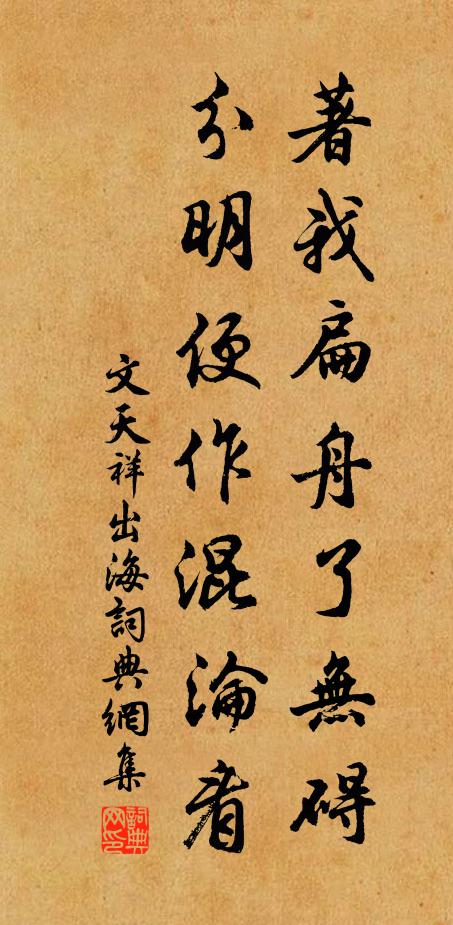 著我扁舟了無碍
分明便作混淪看
文天祥出海詞典網集
詞典網印